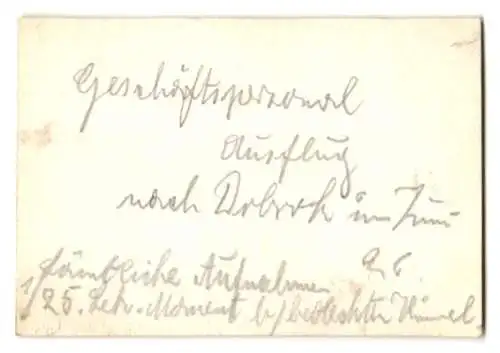 Geschäftspersonal
Ausflug
nach Dobrok im Juni
26.
sämtliche Aufnahmen
1/25. Sek. Moment b/ bedeckter Himmel